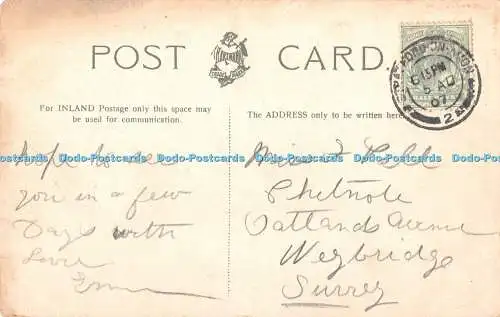 POST CARD.
For INLAND Postage only this space may
be used for communication.
The ADDRESS only to be written here
6 15 PM
5 AU
07
2
Dodo-Postcards Dodo-Postcards Dodo-Postcards Dodo-Postcards Dodo-Postcards
hope to see
you in a few
Days with
Love
Miss
Oatlands Avenue
Weybridge
Surrey